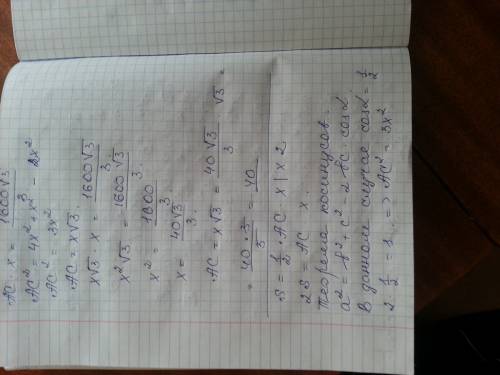 AC · x = 1600√3
AC² = 4x² + x² - 2x²
AC² = 3x²
AC = x√3
x√3 · x = 1600√3 / 3
x²√3 = 1600√3 / 3
x² = 1600 / 3
x = 40√3 / 3
AC = x√3 = 40√3 / 3 · √3 =
= 40 · 3 / 3 = 40
S = 1/2 · AC · x | x 2
2S = AC x.
Теорема косинусов.
a² = b² + c² - 2 bc · cos α
В данном случае cos α = 1/2
2 1/2 = 1. => AC² = 3x²